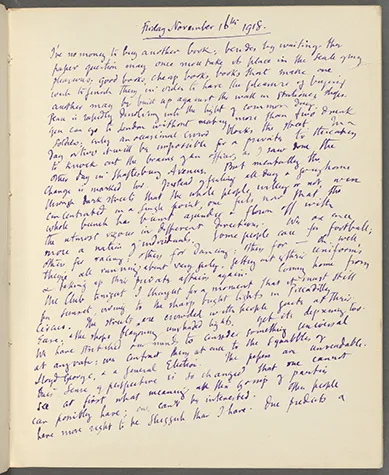 Friday November 16th 1918.
I've no money to buy another book; besides by waiting the
paper question may once more take its place in the scale of my
pleasures; good books, cheap books, books that make one
want to finish them in order to have the pleasure of buying
another may be built up against the wall in Peace
is rapidly dissolving into the light of common day.
You can go to London without meeting more than two drunk
soldiers; only an occasional crowd blocks the street. In a
day or two it will be impossible for a private to threaten
to knock out the brains of an officer, as I saw done the
other day in Shaftesbury Avenue. But mentally the
change is marked too. Instead of feeling all day & going home
through dark streets that the whole people, willing or not, were
concentrated on a single point, one feels now that the
whole bunch has burst asunder & flown off with
the utmost vigour in different directions. We are once
more a nation of individuals. Some people care for football;
others for racing; others for dancing; others for — oh well,
they're all running about very gaily, getting out of their uniforms
& taking up their private affairs again. Coming home from
the Club tonight I thought for a moment that it must still
be sunset, owing to the sharp bright lights in Piccadilly
Circus. The streets are crowded with people quite at their
ease, & the shops blazoning unshaded lights. Yet its depressing too.
We have stretched our minds to consider something universal
at any rate; we contract them at once to the squabbles of
Lloyd George, & a General Election. The papers are unreadable.
One's sense of perspective is so changed that one cannot
see at first what meaning all this gossip of parties
can possibly have; one can't be interested. Other people
have more right to be sluggish than I have. One predicts a